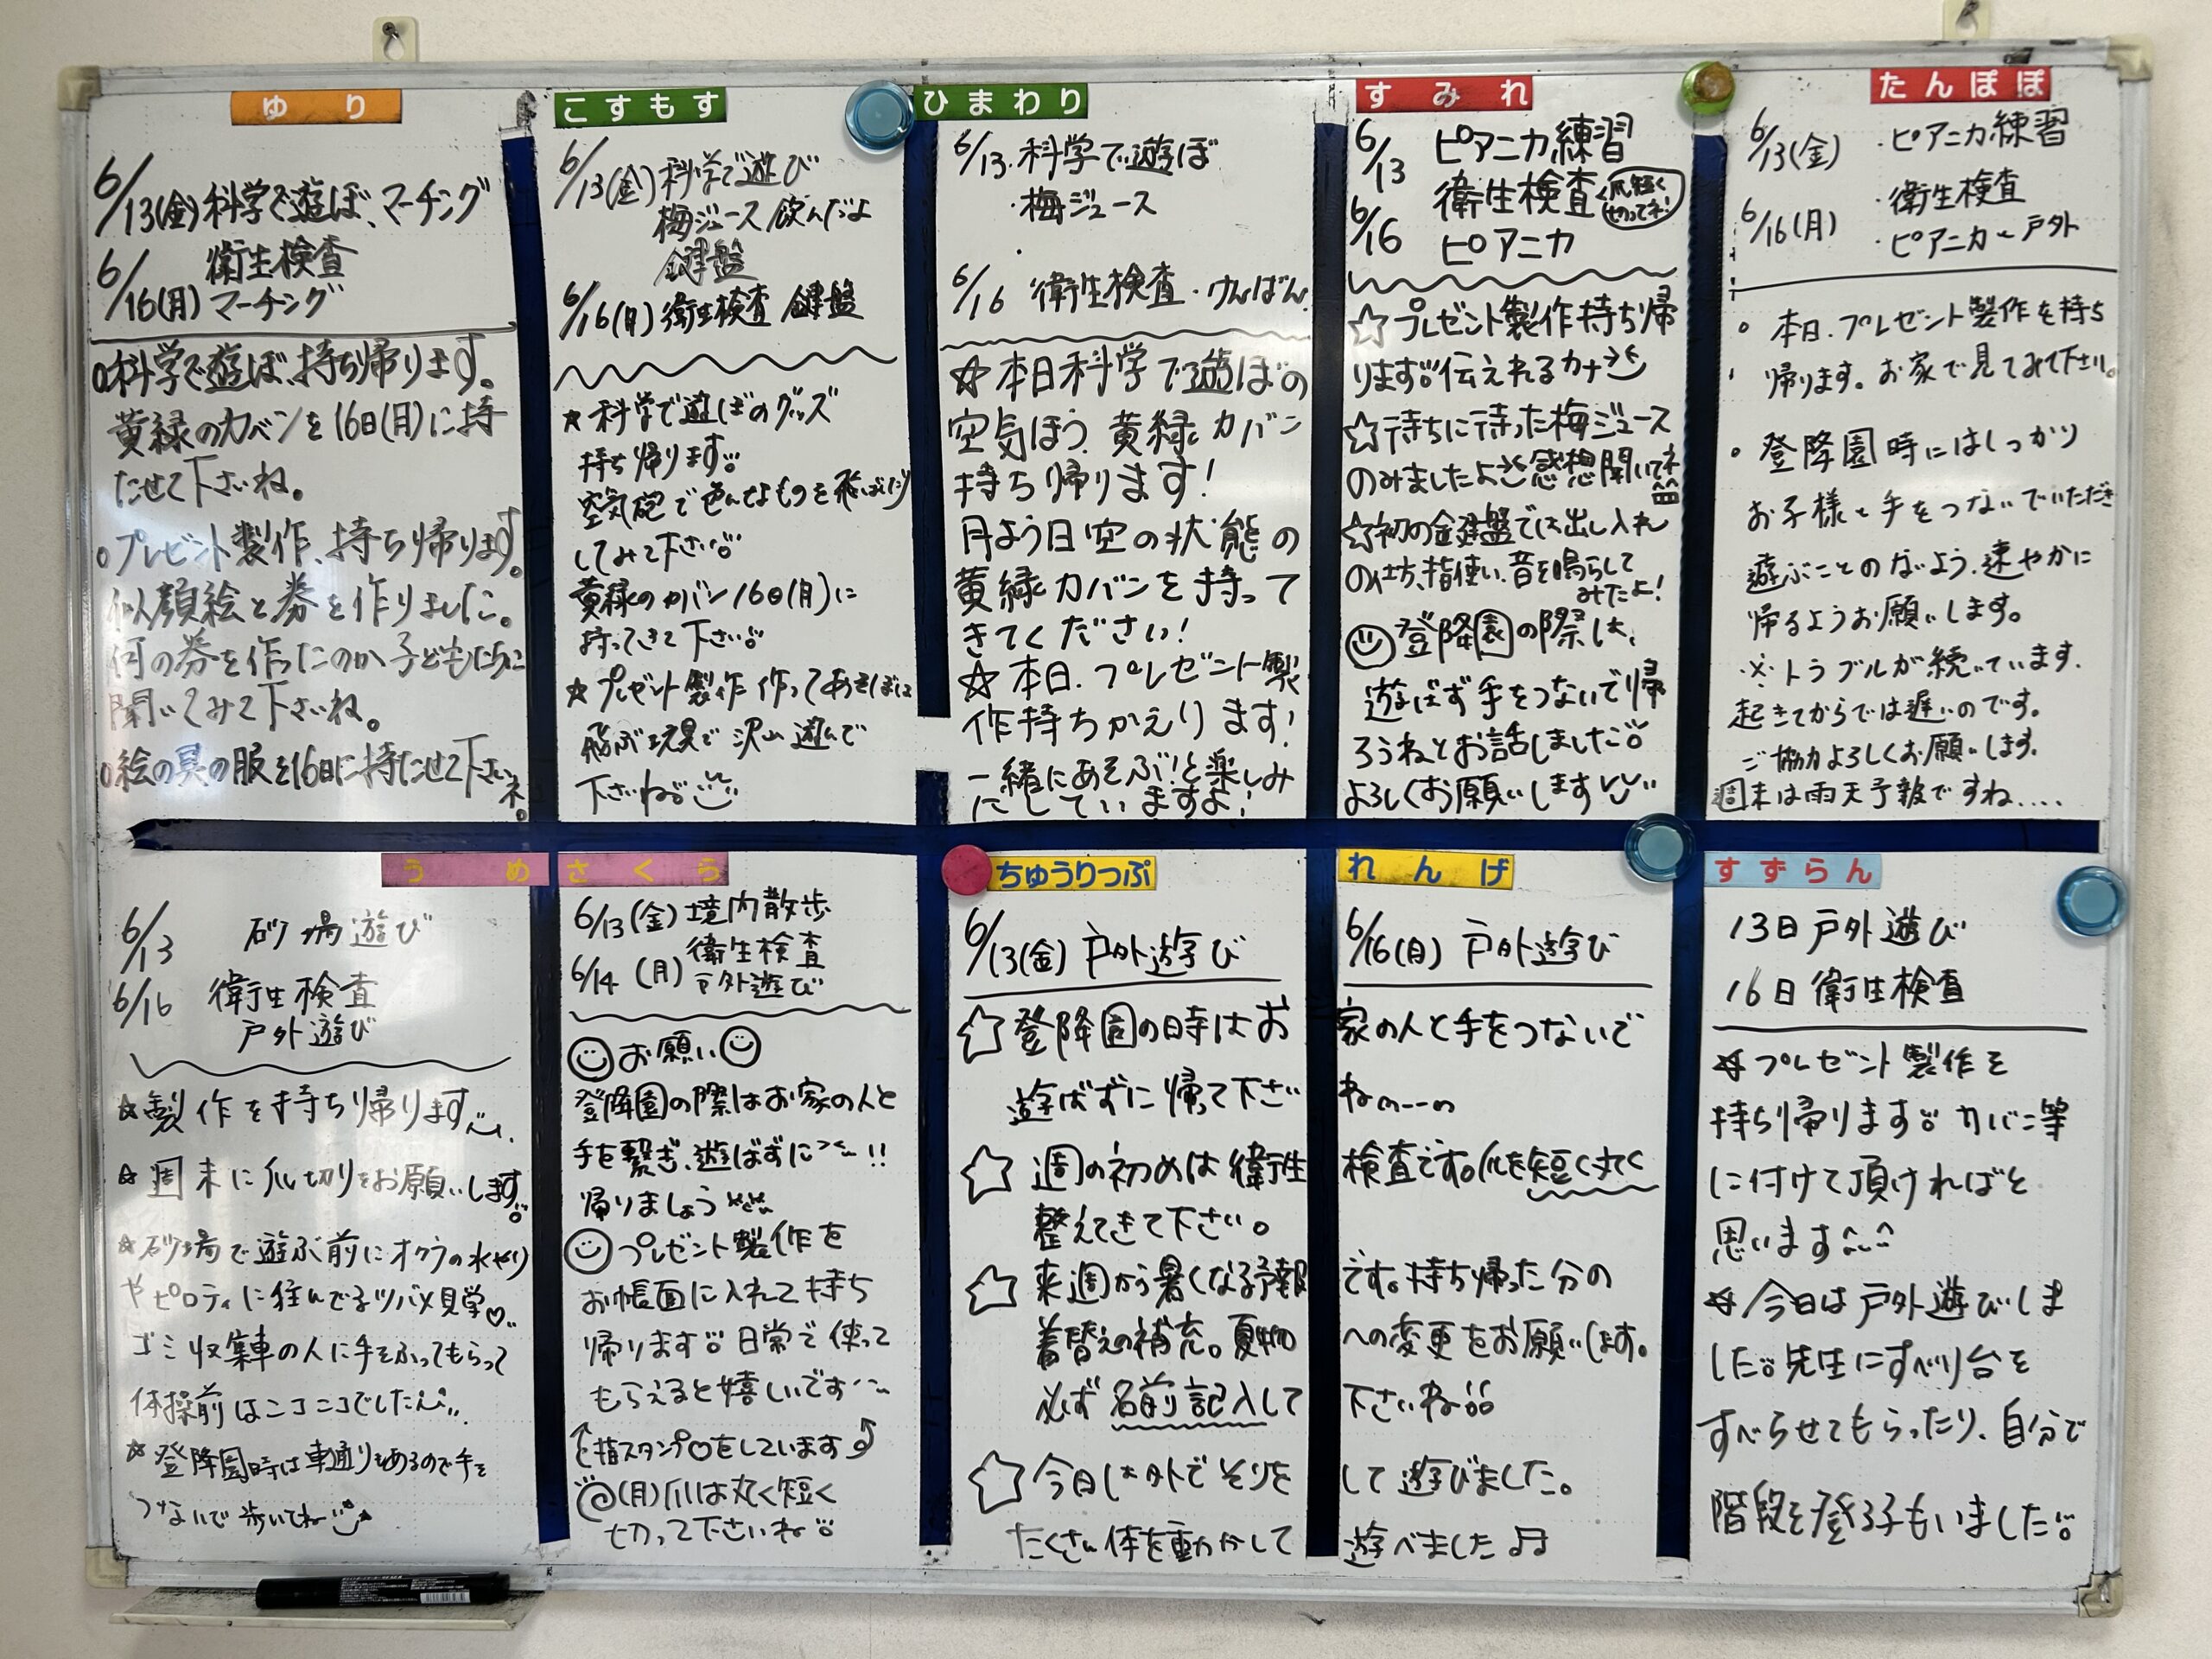 ゆり
6/13(金)科学で遊ぼ、マーチング
衛生検査
6/16(月)マーチング
○科学で遊ぼ、持ち帰ります。
黄緑のカバンを16日(月)に持
たせて下さいね。
○プレゼント製作、持ち帰ります。
似顔絵と券を作りました。
何の券を作ったのか子どもたちに
聞いてみて下さいね。
○絵の具の服を16日に持たせて下さいネ。
こすもす
6/13(金)科学で遊び
梅ジュース飲んだよ
鍵盤
6/16(月)衛生検査 鍵盤
★科学で遊ぼのグッズ
持ち帰ります。
空気砲で色んなものを飛ばしたり
してみて下さい。
黄緑のカバン16日(月)に
持ってきて下さい。
★プレゼント製作 作ってあそぼは
飛ぶ玩具で沢山遊んで
下さいね。
ひまわり
6/13・科学で遊ぼ
・梅ジュース
・
6/16 衛生検査・けんばん
☆本日科学で遊ぼの
空気ほう、黄緑カバン
持ち帰ります!
月よう日空の状態の
黄緑カバンを持って
きてください!
☆本日、プレゼント製
作持ちかえります!
一緒にあそぶ!と楽しみ
にしていますよ!
すみれ
6/13 ピアニカ練習
衛生検査 爪短く切ってネ!
6/16 ピアニカ
☆プレゼント製作持ち帰
ります。伝えれるカナ
☆待ちに待った梅ジュース
のみましたよ 感想聞いてネ
☆初の鍵盤では出し入れ
の仕方、指使い、音を鳴らして
みたよ!
登降園の際は、
遊ばず手をつないで帰
ろうねとお話しました。
よろしくお願いします
たんぽぽ
6/13(金) ・ピアニカ練習
・衛生検査
6/16(月) ・ピアニカ・戸外
○ 本日、プレゼント製作を持ち
帰ります。お家で見てみて下さい。
○ 登降園時にはしっかり
お子様と手をつないでいただき
遊ぶことのないよう、速やかに
帰るようお願いします。
※トラブルが続いています。
起きてからでは遅いのです。
ご協力よろしくお願いします。
週末は雨天予報ですね....
うめ
6/13 砂場遊び
6/16 衛生検査
戸外遊び
☆製作を持ち帰ります
☆週末に爪切りをお願いします。
☆砂場で遊ぶ前にオクラの水やり
やピロティに住んでるツバメ見学♡
ゴミ収集車の人に手をふってもらって
体操前はニコニコでした
☆登降園時は車通りもあるので手を
つないで歩いてね
さくら
6/13(金)境内散歩
衛生検査
6/14(月)戸外遊び
お願い
登降園の際はお家の人と
手を繋ぎ、遊ばずに〜!!
帰りましょう
プレゼント製作を
お帳面に入れて持ち
帰ります。日常で使って
もらえると嬉しいです
↑指スタンプ♡をしています
(月)爪は丸く短く
切って下さいね。
ちゅうりっぷ
れんげ
6/13(金)戸外遊び
6/16(月)戸外遊び
☆登降園の時はお家の人と手をつないで
遊ばずに帰って下さいね〜
☆週の初めは衛生検査です。爪を短く丸く
整えてきて下さい。
☆来週から暑くなる予報です。持ち帰った分の
着替えの補充。夏物への変更をお願いします。
必ず名前記入して下さいね
☆今日は外でそりをして遊びました。
たくさん体を動かして遊べました♫
すずらん
13日戸外遊び
16日衛生検査
☆プレゼント製作を
持ち帰ります。カバン等
に付けて頂ければと
思います
☆今日は戸外遊びしま
した。先生にすべり台を
すべらせてもらったり、自分で
階段を登る子もいました。